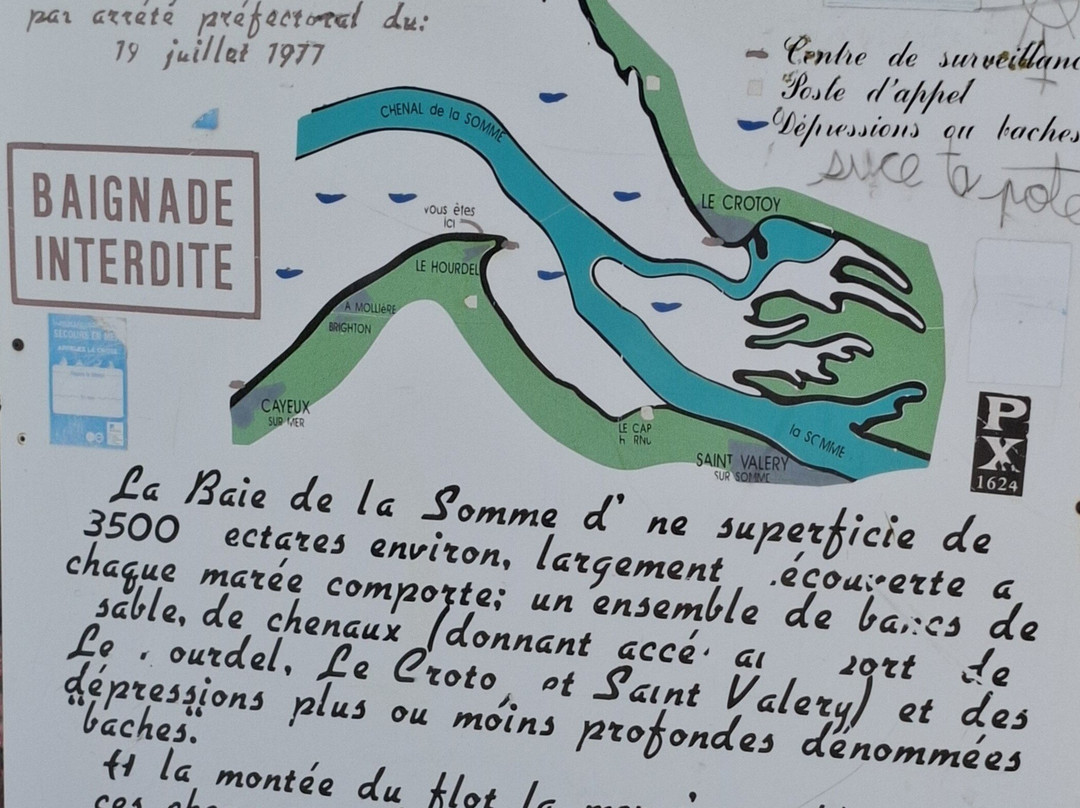 par arrété préfectoral du:
19 juillet 1977
Centre de surveillanc
Poste d'appel
Dépressions ou baches
suce ta
BAIGNADE
INTERDITE
CHENAL de la SOMME
vous êtes
ici
LE CROTOY
LE HOURDEL
A MOLLIèRE
BRIGHTON
CAYEUX
SUR MER
LE CAP
SAINT VALERY
SUR SOMME
la SOMME
PX
1624
La Baie de la Somme d' ne superficie de
3500 ectares environ, largement écouverte a
chaque marée comporte; un ensemble de bancs de
sable, de chenaux (donnant accé au port de
Le ourdel, Le Croto et Saint Valery) et des
dépressions plus ou moins profondes dénommées
"baches".
A la montée du flot la
ces